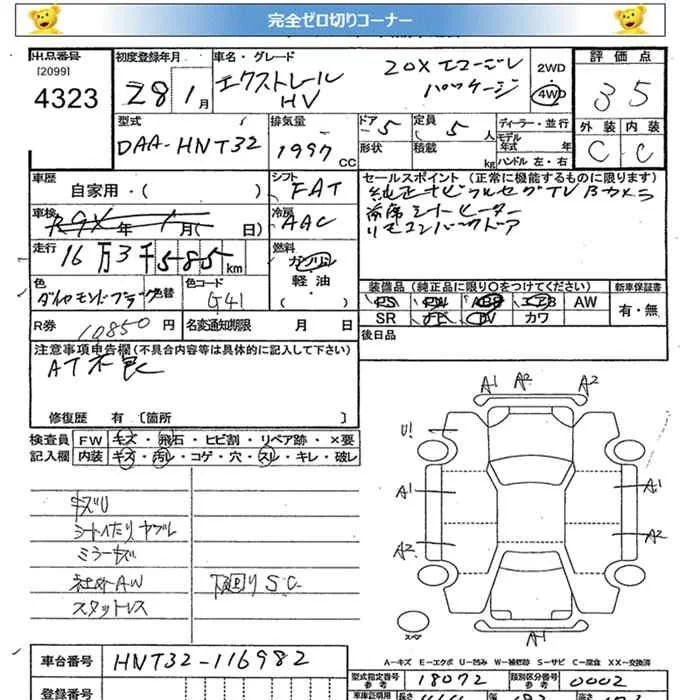 完全ゼロ切りコーナー
出品番号
[2099]
4323
初度登録年月
28 1月
車名・グレード
エクストレール
HV
20X エマージレ
パッケージ
2WD
4WD
評価点
3 5
外装 内装
C C
型式
DAA-HNT32
排気量
1997 CC
ドア 5
定員 5 人
形状
積載 kg
ディーラー・並行
モデル年式 年
ハンドル 左・右
車歴
自家用・( )
シフト
FAT
セールスポイント (正常に機能するものに限ります)
純正ナビ フルセグTV Bカメラ
前席シートヒーター
リモコンバックドア
車検
R9X年 1月( 日)
冷房
AAC
走行
16万3千585km
燃料
ガソリン
軽油
・( )
色
ダイヤモンドブラック
色替
色コード
G41
装備品 (純正品に限り○をつけてください)
PS PW ABS エアB AW
SR ナビ TV カワ
新車保証書
有・無
R券
10850 円
名変通知期限 月 日
後日品
注意事項申告欄 (不具合内容等は具体的に記入して下さい)
AT不良
修復歴 有 [箇所 ]
検査員記入欄
FW キズ・飛石・ヒビ割・リペア跡・×要
内装 キズ・汚レ・コゲ・穴・スレ・キレ・破レ
キズU
シートヘタリ、ヤブレ
ミラーキズ
社外AW
スタットレス
下回りS.C.
A1 A2 A2
U1
A1
A1
A2
A2
スペア
A1
A-キズ E-エクボ U-凹み W-補修跡 S-サビ C-腐食 XX-交換済
車台番号
HNT32-116982
型式指定番号 参考
18072
類別区分番号 参考
0002
登録番号
車庫証明用 参考
長さ
幅
高さ